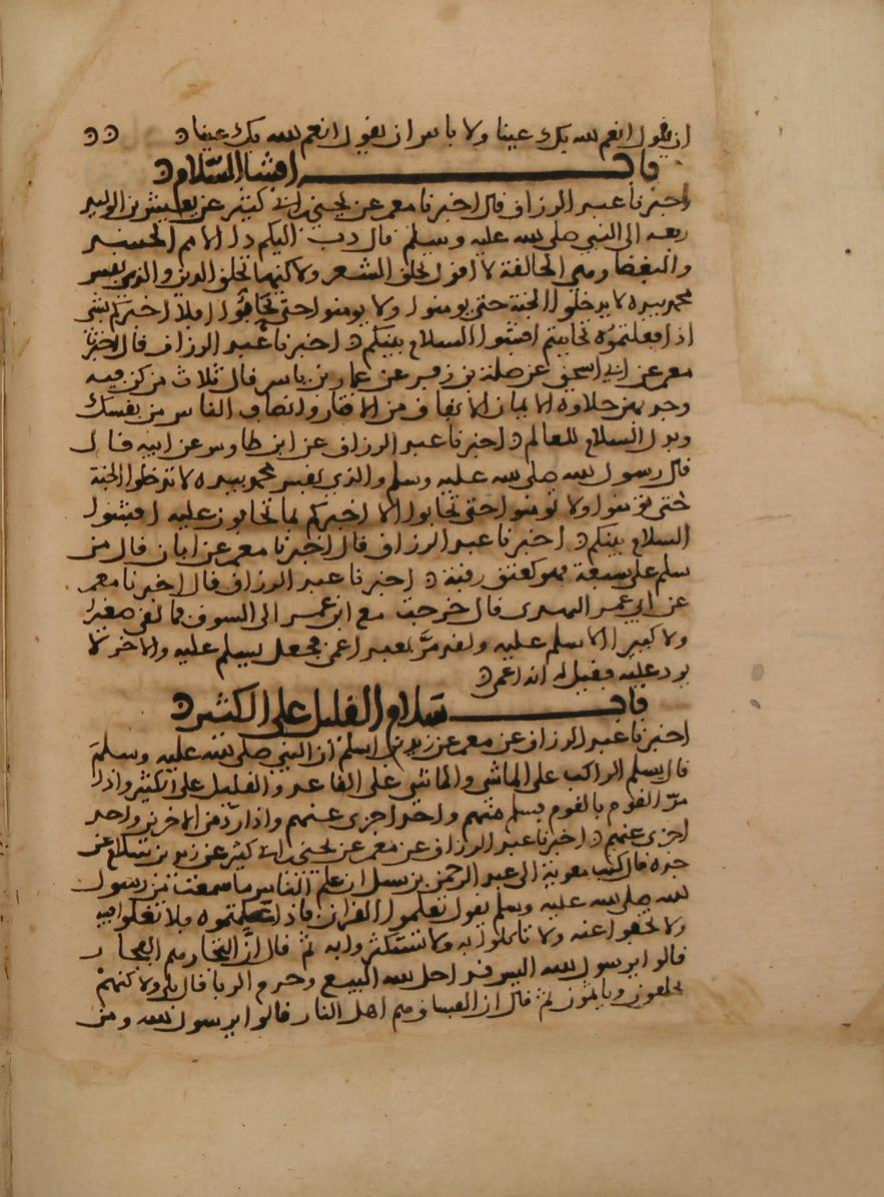 ان يقول انعم الله بك عينا ولا باس ان يقول انعم الله بك عينا
باب افشا السلام
اخبرنا عبد الرزاق قال اخبرنا معمر عن يحيى بن ابي كثير عن يعيش بن الوليد
رفعه الى النبي صلى الله عليه وسلم قال دب اليكم دا الامم الحسد
والبغضا وهي الحالقة لا اقول تحلق الشعر ولاكنها تحلق الدين والذي نفس
محمد بيده لا تدخلوا الجنة حتى تومنوا ولا تومنوا حتى تحابوا افلا اخبركم بشي
اذا فعلتموه تحاببتم افشوا السلام بينكم اخبرنا عبد الرزاق قال اخبرنا
معمر عن ابي اسحق عن صلة بن زفر عن عمار بن ياسر قال ثلاث من كن فيه
وجد بهن حلاوة الايمان الانفاق من الاقتار وانصاف الناس من نفسك
وبذل السلام للعالم اخبرنا عبد الرزاق عن ابن طاوس عن ابيه قال
قال رسول الله صلى الله عليه وسلم والذي نفس محمد بيده لا تدخلوا الجنة
حتى تومنوا ولا تومنوا حتى تحابوا الا اخبركم بما تحابون عليه افشوا
السلام بينكم اخبرنا عبد الرزاق قال اخبرنا معمر عن ابان قال من
سلم على سبعة فهو كعتق رقبة اخبرنا عبد الرزاق قال اخبرنا معمر
عن ابي عمر قال خرجت مع ابن عمر الى السوق فما لقي صغيرا
ولا كبيرا الا سلم عليه ولقد مر بعبد اعمى فجعل يسلم عليه والاخر لا
يرد عليه فقيل له انه اعمى
باب سلام القليل على الكثير
اخبرنا عبد الرزاق عن معمر عن زيد بن اسلم ان النبي صلى الله عليه وسلم
قال يسلم الراكب على الماشي والماشي على القاعد والقليل على الكثير واذا
مر القوم بالقوم فسلم منهم واحد اجزى عنهم واذا رد من الاخرين واحد
اجزى عنهم اخبرنا عبد الرزاق عن معمر عن يحيى بن ابي كثير عن زيد بن سلام عن
جده قال كتب معوية الى عبد الرحمن بن شبل ان علم الناس ما سمعت من رسول
الله صلى الله عليه وسلم يقول تعلموا القران فاذا علمتموه فلا تغلوا فيه
ولا تجفوا عنه ولا تاكلوا به ولا تستكثروا به ثم قال ان التجار هم الفجار
قالوا يرسول الله اليس قد احل الله البيع وحرم الربا قال بلى ولاكنهم
يحلفون وياثمون ثم قال ان الفساق هم اهل النار قالوا يرسول الله ومن